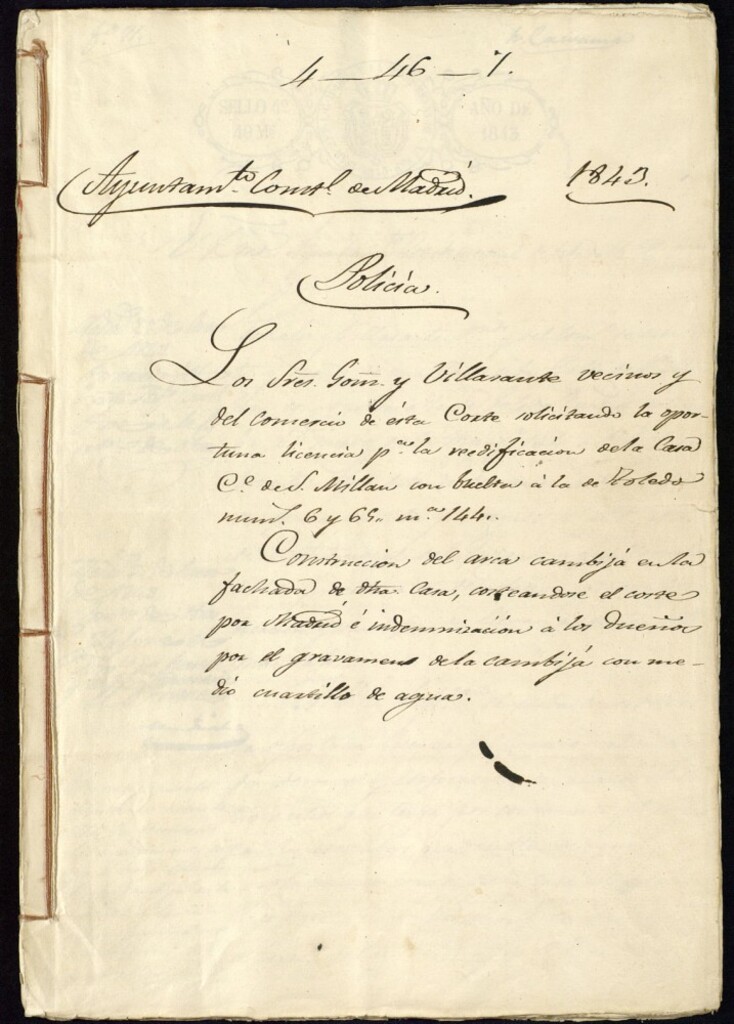 4 — 46 — 7.
Ayuntam.to Const.l de Madrid. 1843.
Policia.
Los Sres. Gom. y Villasante vecinos y
del comercio de ésta Corte solicitando la opor-
tuna licencia p.a la reedificacion de la Casa
C.e de S. Millan con buelta à la de Toledo
num.s 6 y 65, m.a 144.
Construccion del arca cambijà en la
fachada de dha. Casa, costeandose el coste
por Madrid é indemnizacion à los dueños
por el gravamen de la cambijà con me-
dio cuartillo de agua.
SELLO 4º
AÑO DE
1843